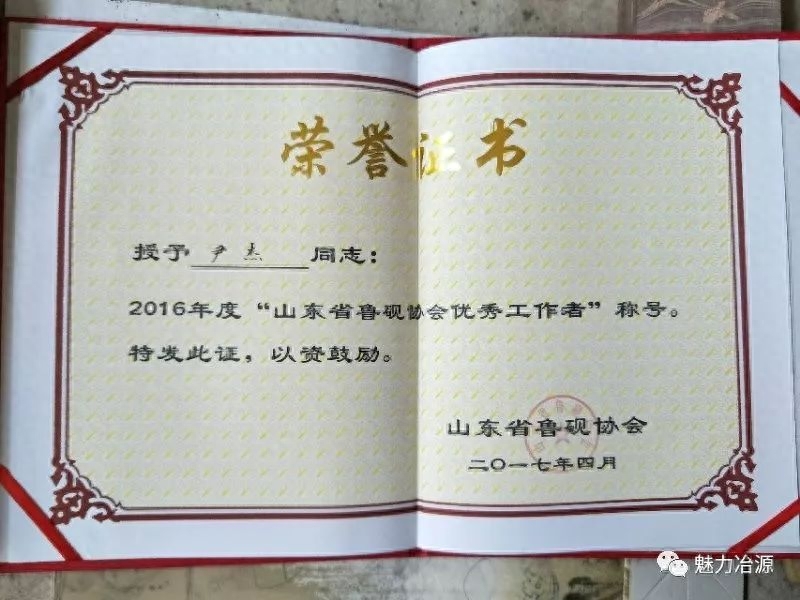 荣誉证书
授予 尹杰 同志：
2016年度“山东省鲁砚协会优秀工作者”称号。
特发此证，以资鼓励。
山东省鲁砚协会
二〇一七年四月
魅力冶源